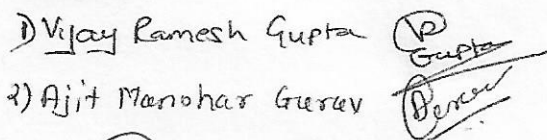 1) Vijay Ramesh Gupta Gupta
2) Ajit Manohar Gurav